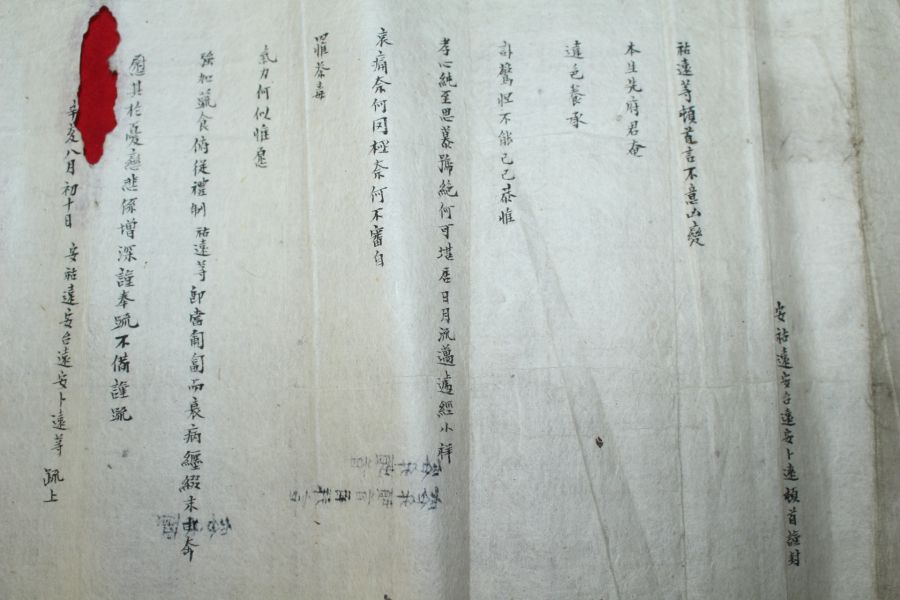 安祜遠安台遠安卜遠頓首謹封
祜遠等頓首言不意凶變
本生先府君奄
違色養承
訃驚怛不能已已恭惟
孝心純至思慕號絶何可堪居日月流邁遽經小祥
哀痛奈何罔極奈何不審自
罹荼毒
氣力何似惟冀
強加蔬食俯從禮制 祜遠等即當匍匐而衰病纏綴末由奔
慰其於憂戀悲係增深謹奉疏不備謹疏
辛亥八月初十日 安祜遠安台遠安卜遠等 疏上